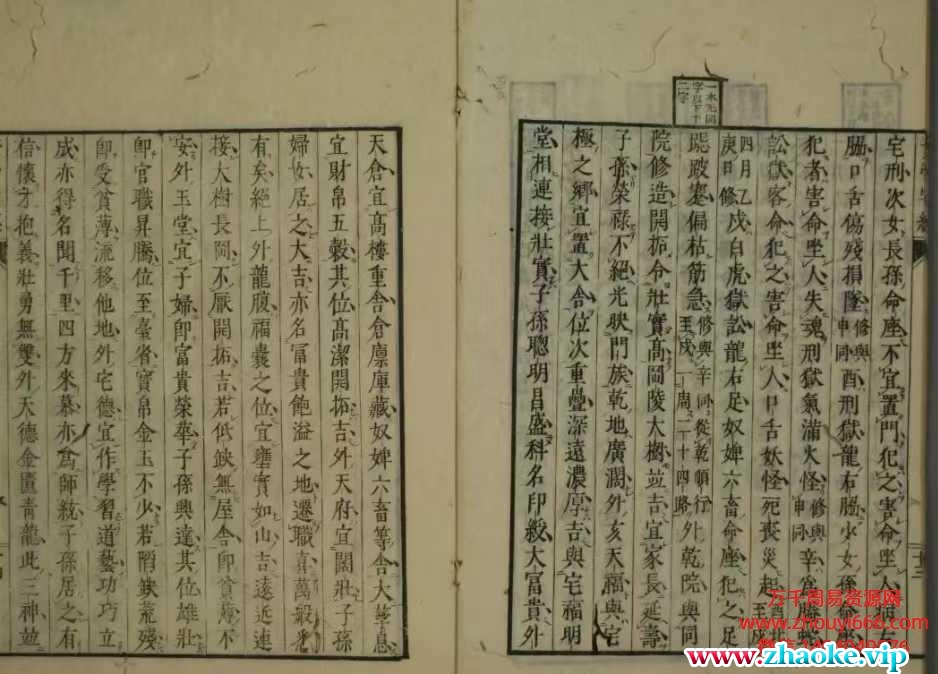 一本无岡
字以下十
二字
宅刑次女長孫命座不宜置門犯之害命坐人
脇口舌傷殘損墜修與申同酉刑獄龍右脇少女孫命座
犯者害命坐人失魂刑獄氣滿火怪修與申同辛宮
訟獄客命犯之害命坐人口舌妖怪死喪災起
四月乙庚日修戌白虎獄訟龍右足奴婢六畜命座犯之足
跛蹇偏枯筋急修與辛同從乾順行至戌一周二十四路外乾院與同
院修造開拓令壯實高岡陵大樹並吉宜家長延壽
子孫榮祿不絕光映門族乾地廣濶外亥天福與宅
極之鄉宜置大舍位次重疊深遠濃厚吉與宅福明
堂相連接壯實子孫聰明昌盛科名印綬大富貴外
天倉宜高樓重舍倉廪庫藏奴婢六畜等舍大孳息
宜財帛五穀其位高潔開拓吉外天府宜闊壯子孫
婦女居之大吉亦名富貴飽溢之地遷職喜萬般悉
有矣絕上外龍腹福囊之位宜壅實如山吉遠近連
接大樹長岡不厭開拓吉若低缺無屋舍即貧薄不
安外玉堂宜子婦即富貴榮華子孫興達其位雄壯
即官職昇騰位至臺省寶帛金玉不少若陷缺荒殘
即受貧薄流移他地外宅德宜作學習道藝功巧立
成亦得名聞千里四方來慕亦為師統子孫居之有
信懷才抱義壯勇無雙外天德金匱青龍此三神並
万千周易资源网
www.zhouyi666.com
www.zhaoke.vip